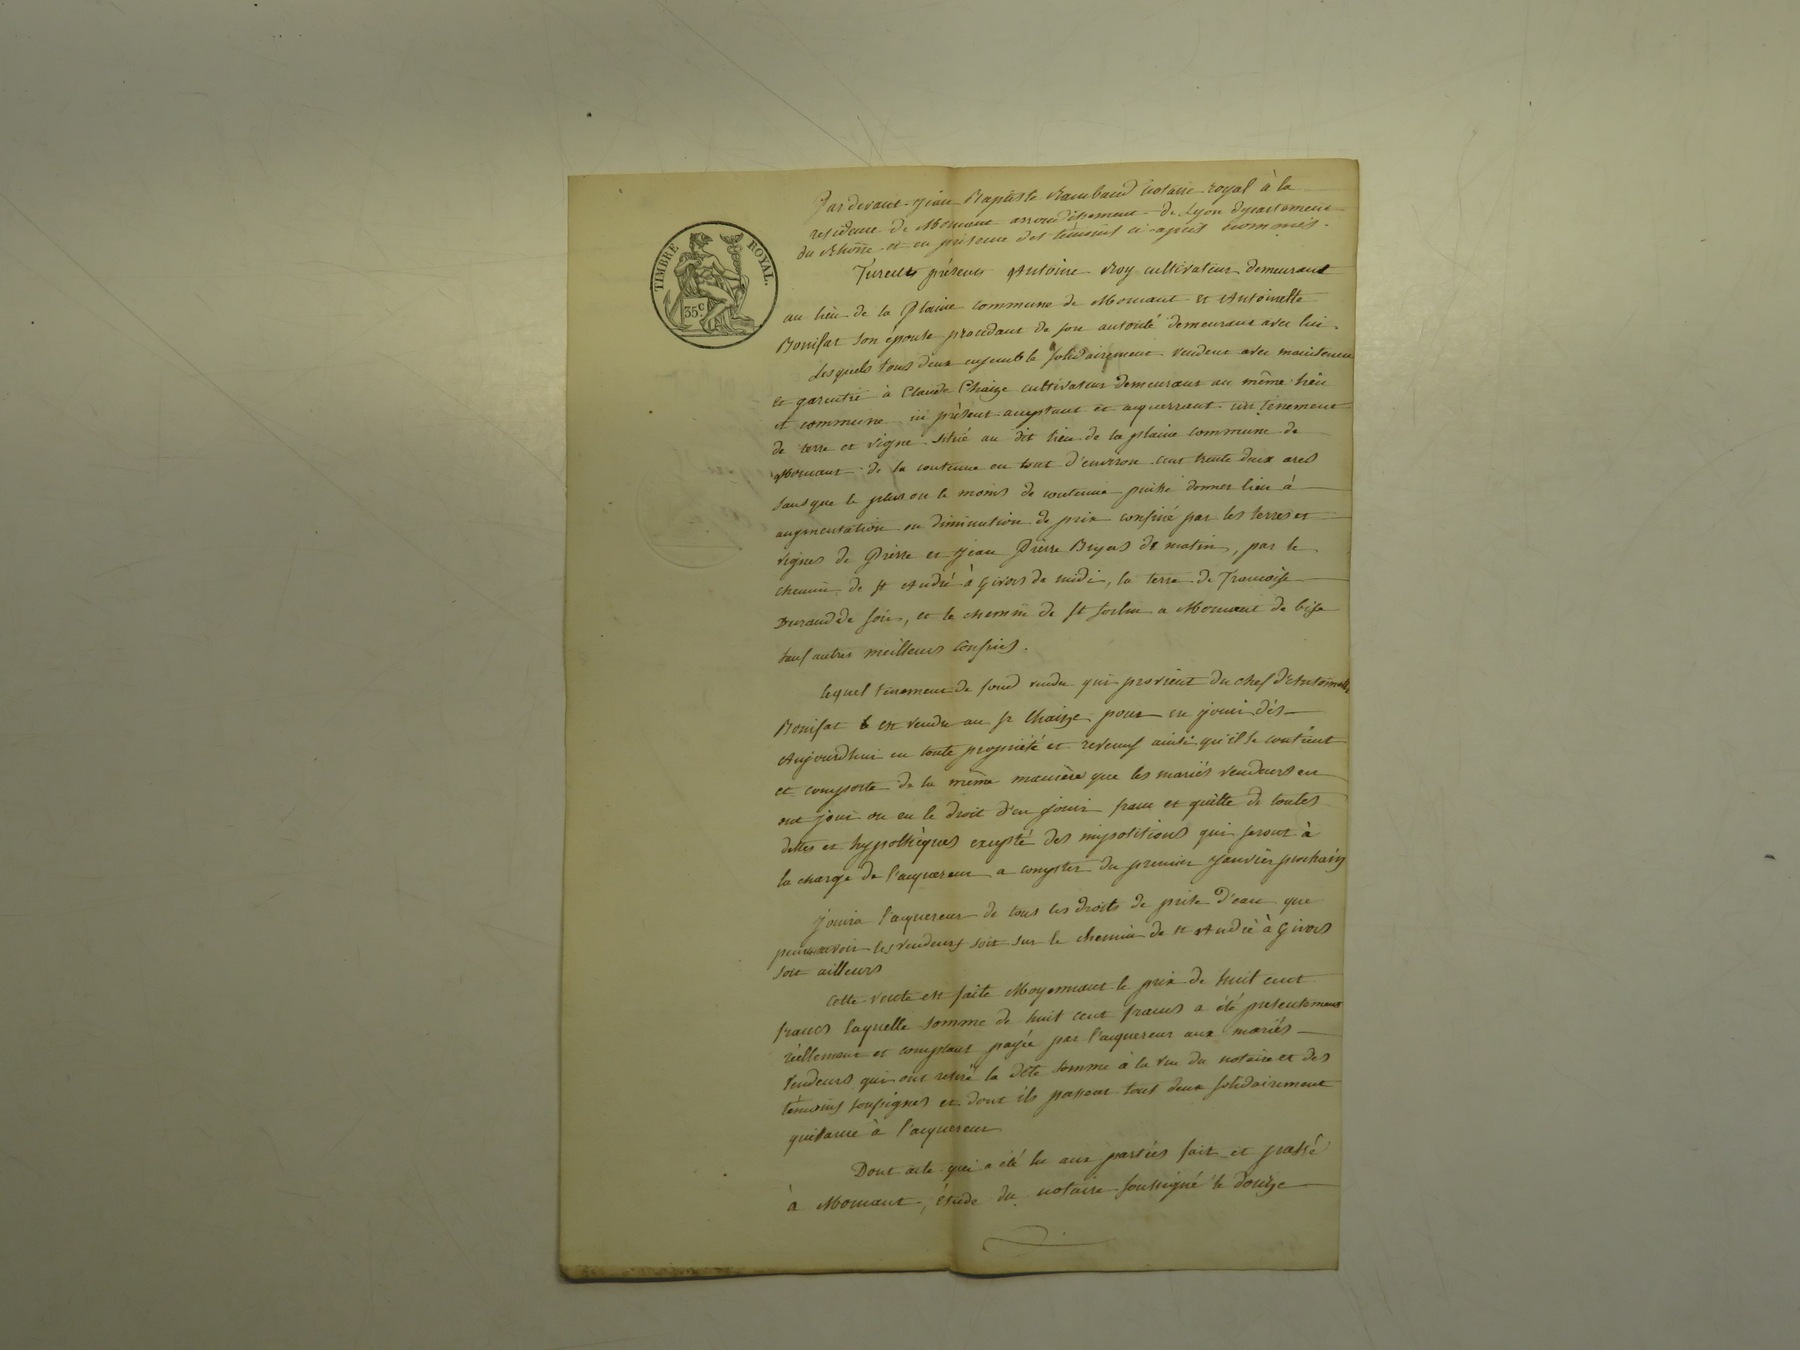 TIMBRE ROYAL.
35 c
Par devant Jean Baptiste Rambaud notaire royal à la
residence de Mornant arrondissement de Lyon département
du Rhône et en présence des témoins ci après nommés.
Furent présents Antoine Roy cultivateur demeurant
au lieu de la Plaine commune de Mornant et Antoinette
Bonifat son épouse procédant de son autorité demeurant avec lui.
Lesquels tous deux ensemble solidairement vendent avec maintenue
et garentie à Claude Chaize cultivateur demeurant au même lieu
et commune ici présent acceptant et acquerrant un tenement
de terre et vigne situé au dit lieu de la plaine commune de
Mornant de la contenue en tout d'environ cent trente deux ares
sans que le plus ou le moins de contenue puisse donner lieu à
augmentation ou diminution de prix confiné par les terres et
vignes de Pierre et Jean Pierre Bryas de matin, par le
chemin de st André à Givors de midi, la terre de Francoise
Durand de soir, et le chemin de st Sorlin a Mornant de bise
sauf autres meilleurs confins.
lequel tenement de fond vendu qui provient du chef d'Antoinette
Bonifat est vendu au sr Chaize pour en jouir dès
Aujourdhui en toute propriété et revenus ainsi qu'il se contient
et comporte de la même manière que les mariés vendeurs en
ont joui ou eu le droit d'en jouir franc et quitte de toutes
dettes et hypothèques excepté des impositions qui seront à
la charge de l'acquereur a compter du premier Janvier prochain
Jouira l'acquereur de tous les droits de prise d'eau que
peuvent avoir les vendeurs soit sur le chemin de st André à Givors
soit ailleurs
Cette vente est faite Moyennant le prix de huit cent
francs laquelle somme de huit cent francs a été presentement
réellement et comptant payée par l'acquereur aux mariés
vendeurs qui ont retiré la dite somme à la vue du notaire et des
témoins soussignés et dont ils passent tous deux solidairement
quitance à l'acquereur
Dont acte qui a été lu aux parties fait et passé
à Mornant, étude du notaire soussigné le douze